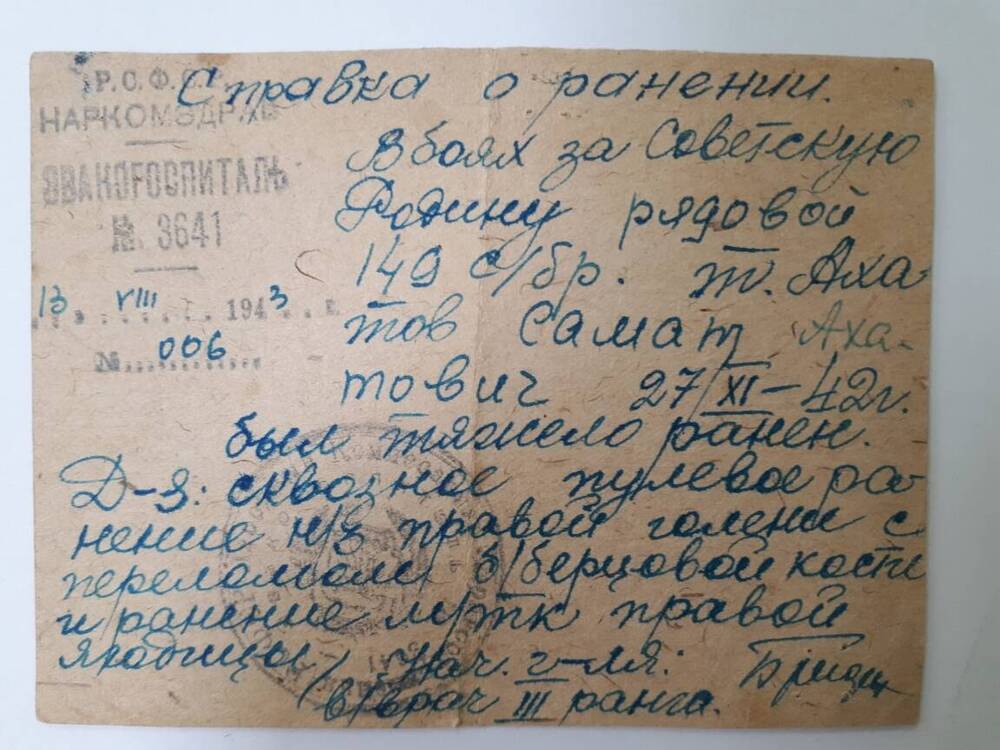 Р.С.Ф.С.Р.
НАРКОМЗДРАВ
ЭВАКОГОСПИТАЛЬ
№ 3641
13 VIII 1943 г.
№ 006
Справка о ранении.
В боях за Советскую
Родину рядовой
149 с/бр. т. Аха-
тов Самат Аха-
тович 27/XI-42г.
был тяжело ранен.
Д-з: сквозное пулевое ра-
нение н/3 правой голени с
переломом б/берцовой кости
и ранение м/тк правой
ягодицы/ Нач. г-ля:
в/врач III ранга.